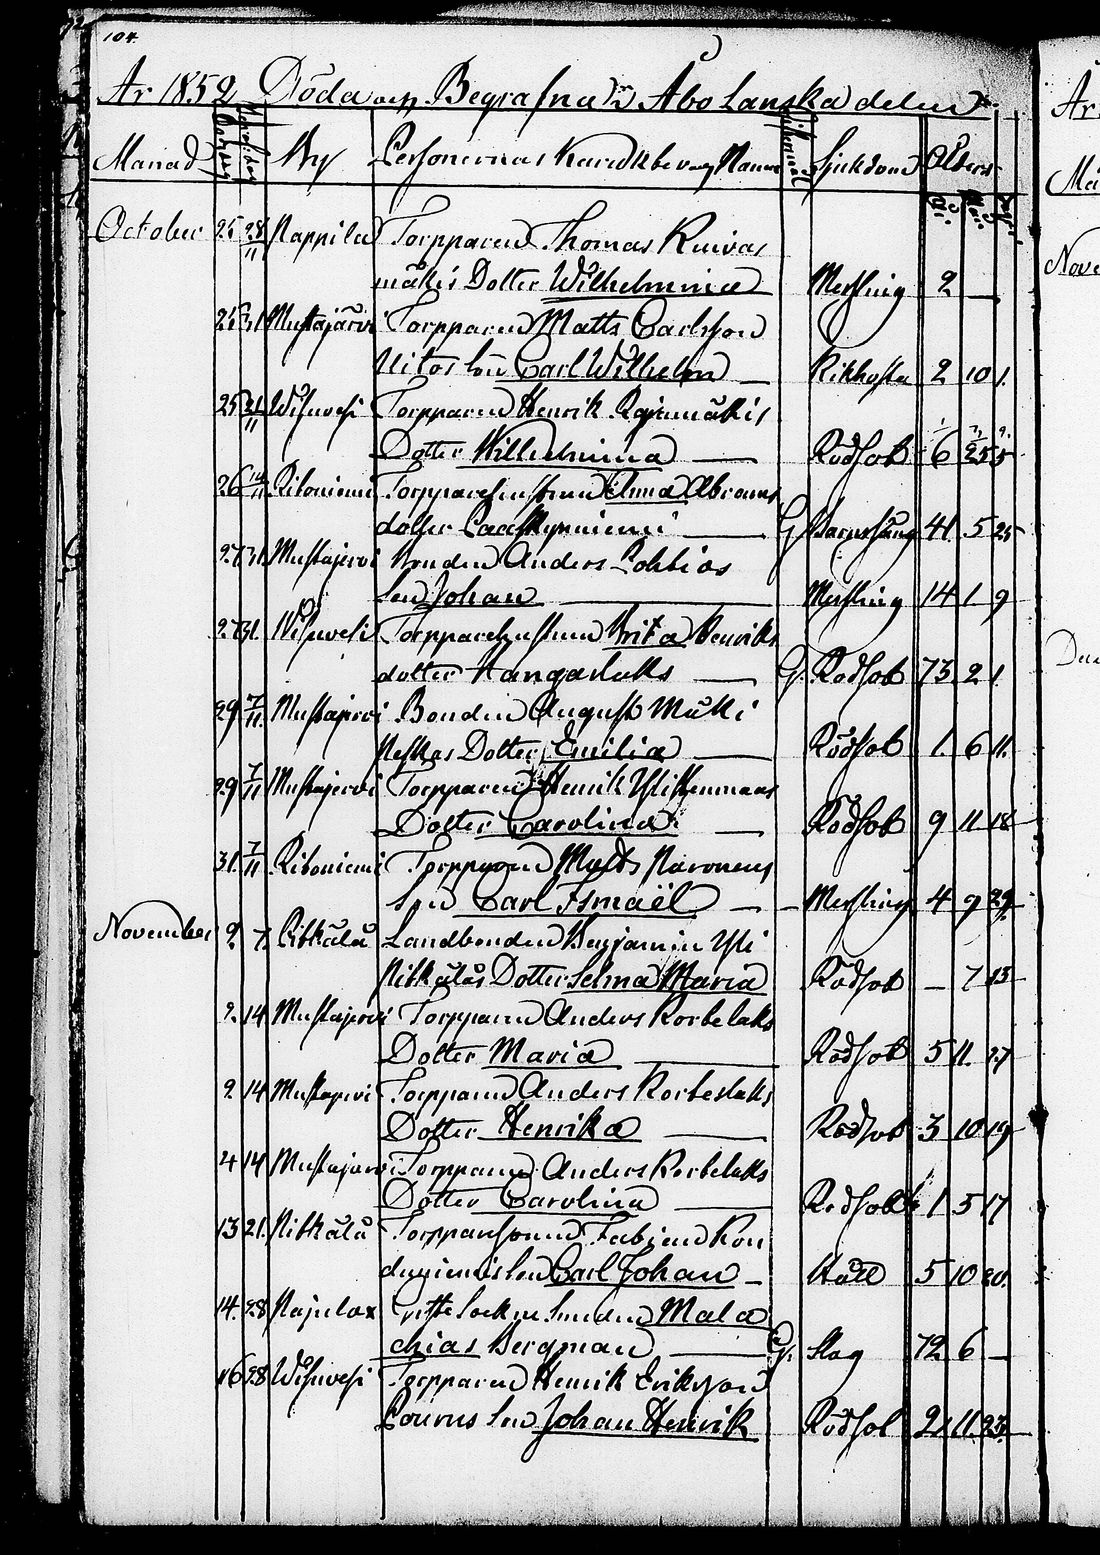 104.
År 1852 Döda och Begrafna i Åbo Länska delen
Månad By Personernas Namn Sjukdom Ålder
October 25 28/11 Nappila Torpparen Thomas Kuivas
mäkis Dotter Wilhelmina Messling 2 —
25 31 Mustajärvi Torpparen Matts Carlsson
Uitos son Carl Wilhelm — Kikhosta 2 10 1.
25 21/11 Wihuvesi Torpparen Henrik Rajamäkis
Dotter Wilhelmina — Rödsot 6
26 14/11 Ritoniemi Torpparehustrun Anna Abrams
dotter — G Barnsäng 41 5 25
27 31 Mustajervi Bonden Anders
Son Johan — Messling 14 1 9
27 31. Wihuvesi Torpparehustrun Brita Henriks
dotter Kangasluks — G. Rodsot 73 2 1
29 7/11 Mustajervi Bonden August Mäki
Neskas Dotter Emilia — Rödsot 1. 6 11.
29 7/11 Mustajervi Torpparen Henrik
Dotter Carolina — Rödsot 9 11 18
31. 7/11 Ritoniemi Torpparen Matts Naronens
Son Carl Ismaël — Messling 4 9 29
November 2 7 Pitkälä Landbonden Benjamin Yli
Pitkäläs Dotter Selma Maria Rödsot — 7 13
2. 14 Mustajervi Torpparen Anders Korbelaks
Dotter Maria — Rödsot 5 11. 27
2 14 Mustajervi Torpparen Anders Korbelaks
Dotter Henrika — Rödsot 3 10 19
4 14 Mustajärvi Torpparen Anders Korbelaks
Dotter Carolina — Rödsot 1 5 17
13 21. Pitkälä Torparesonen Fabian Kon
son Carl Johan — Håll 5 10 20.
14. 28 Najulax Mala
chias Bergman — G. Slag 72 6 —
16 28 Wihuvesi Torpparen Henrik Eriksson
Lourus Son Johan Henrik Rödsot 2 11. 23.